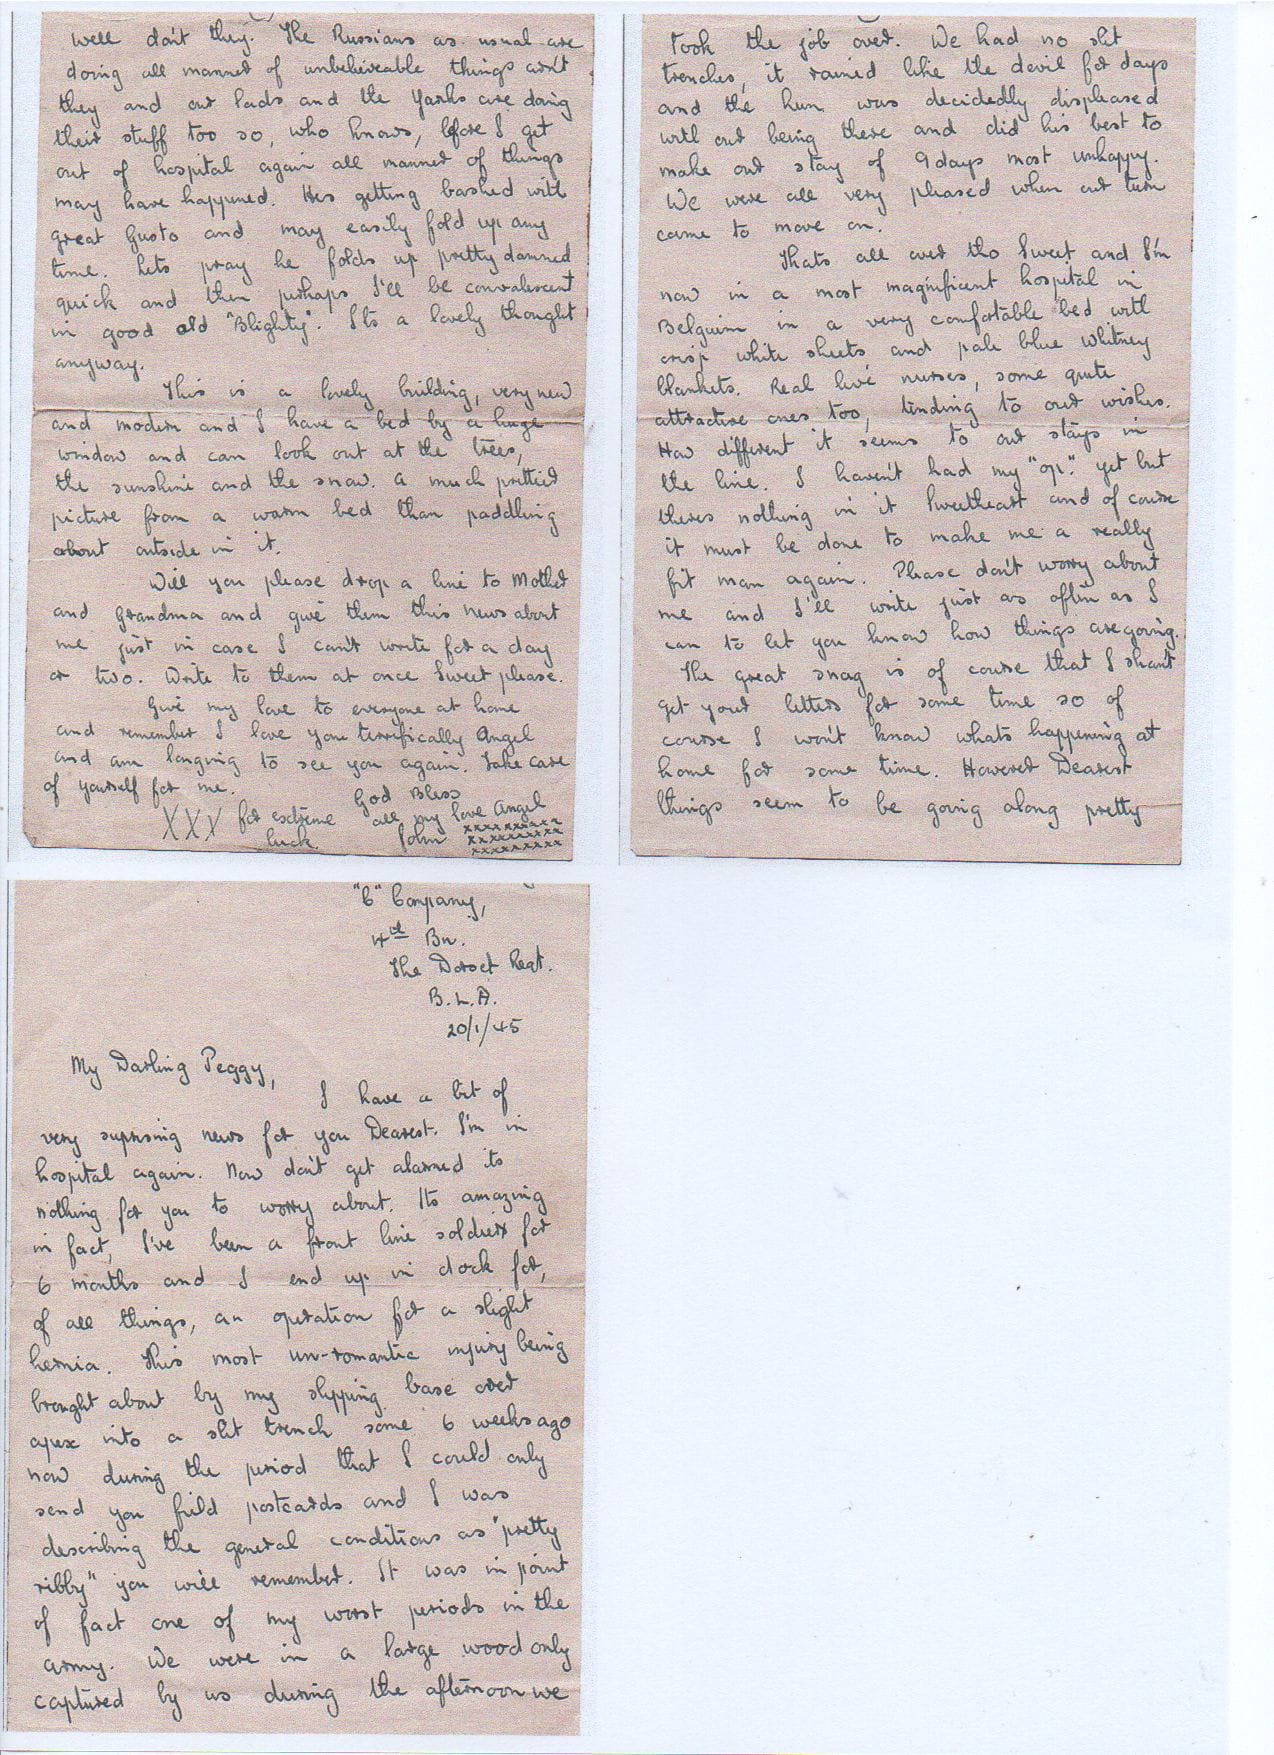 "C" Company,
4th Bn.
The Dorset Regt.
B.L.A.
20/1/45
My Darling Peggy,
I have a bit of
very suprising news for you Dearest. I'm in
hospital again. Now don't get alarmed its
nothing for you to worry about. Its amazing
in fact, I've been a front line soldier for
6 months and I end up in dock for,
of all things, an operation for a slight
hernia. This most un-romantic injury being
brought about by my slipping base over
apex into a slit trench some 6 weeks ago
now during the period that I could only
send you field postcards and I was
describing the general conditions as "pretty
ribby" you will remember. It was in point
of fact one of my worst periods in the
army. We were in a large wood only
captured by us during the afternoon we
took the job over. We had no slit
trenches, it rained like the devil for days
and the hun was decidedly displeased
with our being there and did his best to
make our stay of 9 days most unhappy.
We were all very pleased when our turn
came to move on.
Thats all over tho Sweet and I'm
now in a most magnificent hospital in
Belguim in a very comfortable bed with
crisp white sheets and pale blue whitney
blankets. Real live nurses, some quite
attractive ones too, tending to our wishes.
How different it seems to our stays in
the line. I haven't had my "op." yet but
theres nothing in it Sweetheart and of course
it must be done to make me a really
fit man again. Please don't worry about
me and I'll write just as often as I
can to let you know how things are going.
The great snag is of course that I shan't
get your letters for some time so of
course I won't know whats happening at
home for some time. However Dearest
things seem to be going along pretty
well don't they. The Russians as usual are
doing all manner of unbelieveable things arn't
they and our lads and the Yanks are doing
their stuff too so, who knows, before I get
out of hospital again all manner of things
may have happened. Hes getting bashed with
great Gusto and may easily fold up any
time. Lets pray he folds up pretty damned
quick and then perhaps I'll be convalescent
in good old "Blighty". Its a lovely thought
anyway.
This is a lovely building, very new
and modern and I have a bed by a huge
window and can look out at the trees,
the sunshine and the snow. A much prettier
picture from a warm bed than paddling
about outside in it.
Will you please drop a line to Mother
and Grandma and give them this news about
me just in case I can't write for a day
or two. Write to them at once Sweet please.
Give my love to everyone at home
and remember I love you terrifically Angel
and am longing to see you again. Take care
of yourself for me.
God Bless
all my love Angel
John xxxxxxxxx
xxxxxxxxx
xxxxxxxxx
XXX for extreme
luck.